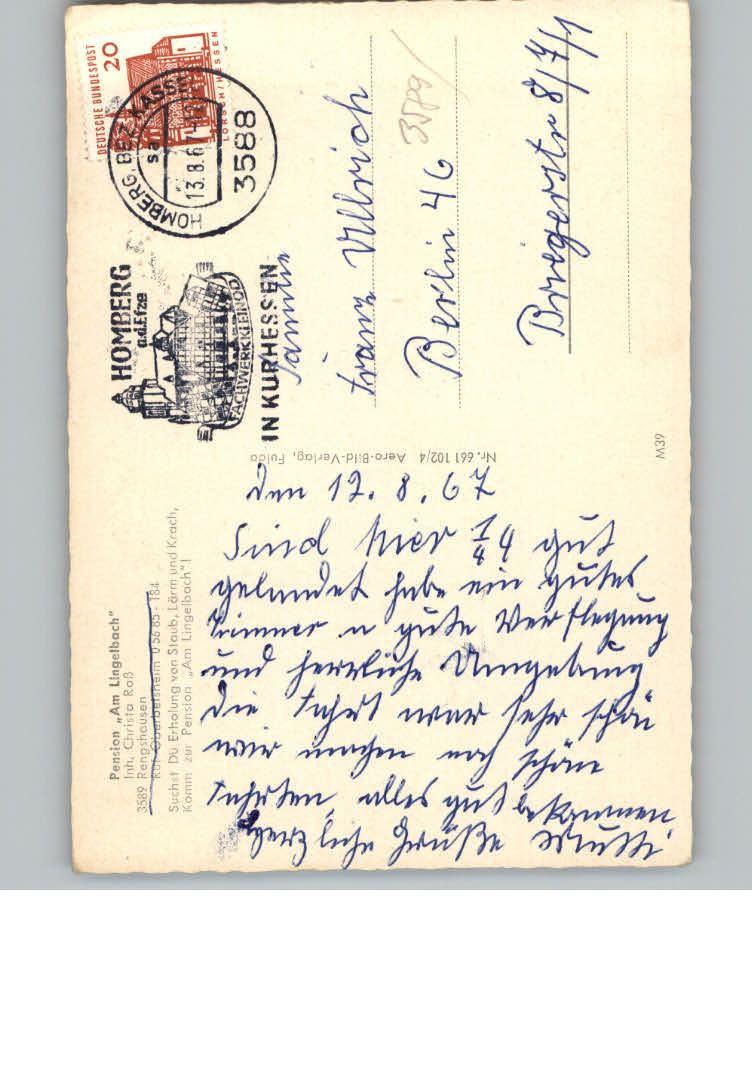 Pension „Am Lingelbach"
Inh. Christa Roß
3589 Rengshausen
Ruf Oberbeisheim 0 56 85 - 184
Suchst Du Erholung von Staub, Lärm und Krach,
Komm zur Pension „Am Lingelbach"!
den 12. 8. 67
Sind hier 1/4 4 gut
gelandet habe ein gutes
Zimmer u gute Verpflegung
und herrliche Umgebung
die Fahrt war sehr schön
wir machen noch schöne
Fahrten, alles gut bekommen
herzliche Grüße Mutti
Nr. 661 102/4 Aero-Bild-Verlag, Fulda
M39
DEUTSCHE BUNDESPOST
20
LORSCH/HESSEN
HOMBERG, BEZ. KASSEL
sa
13.8.67
3588
HOMBERG
a.d.Efze
FACHWERKKLEINOD
IN KURHESSEN
Familie
Franz Ullrich
3589
Berlin 46
Briegerstr 8/7/1